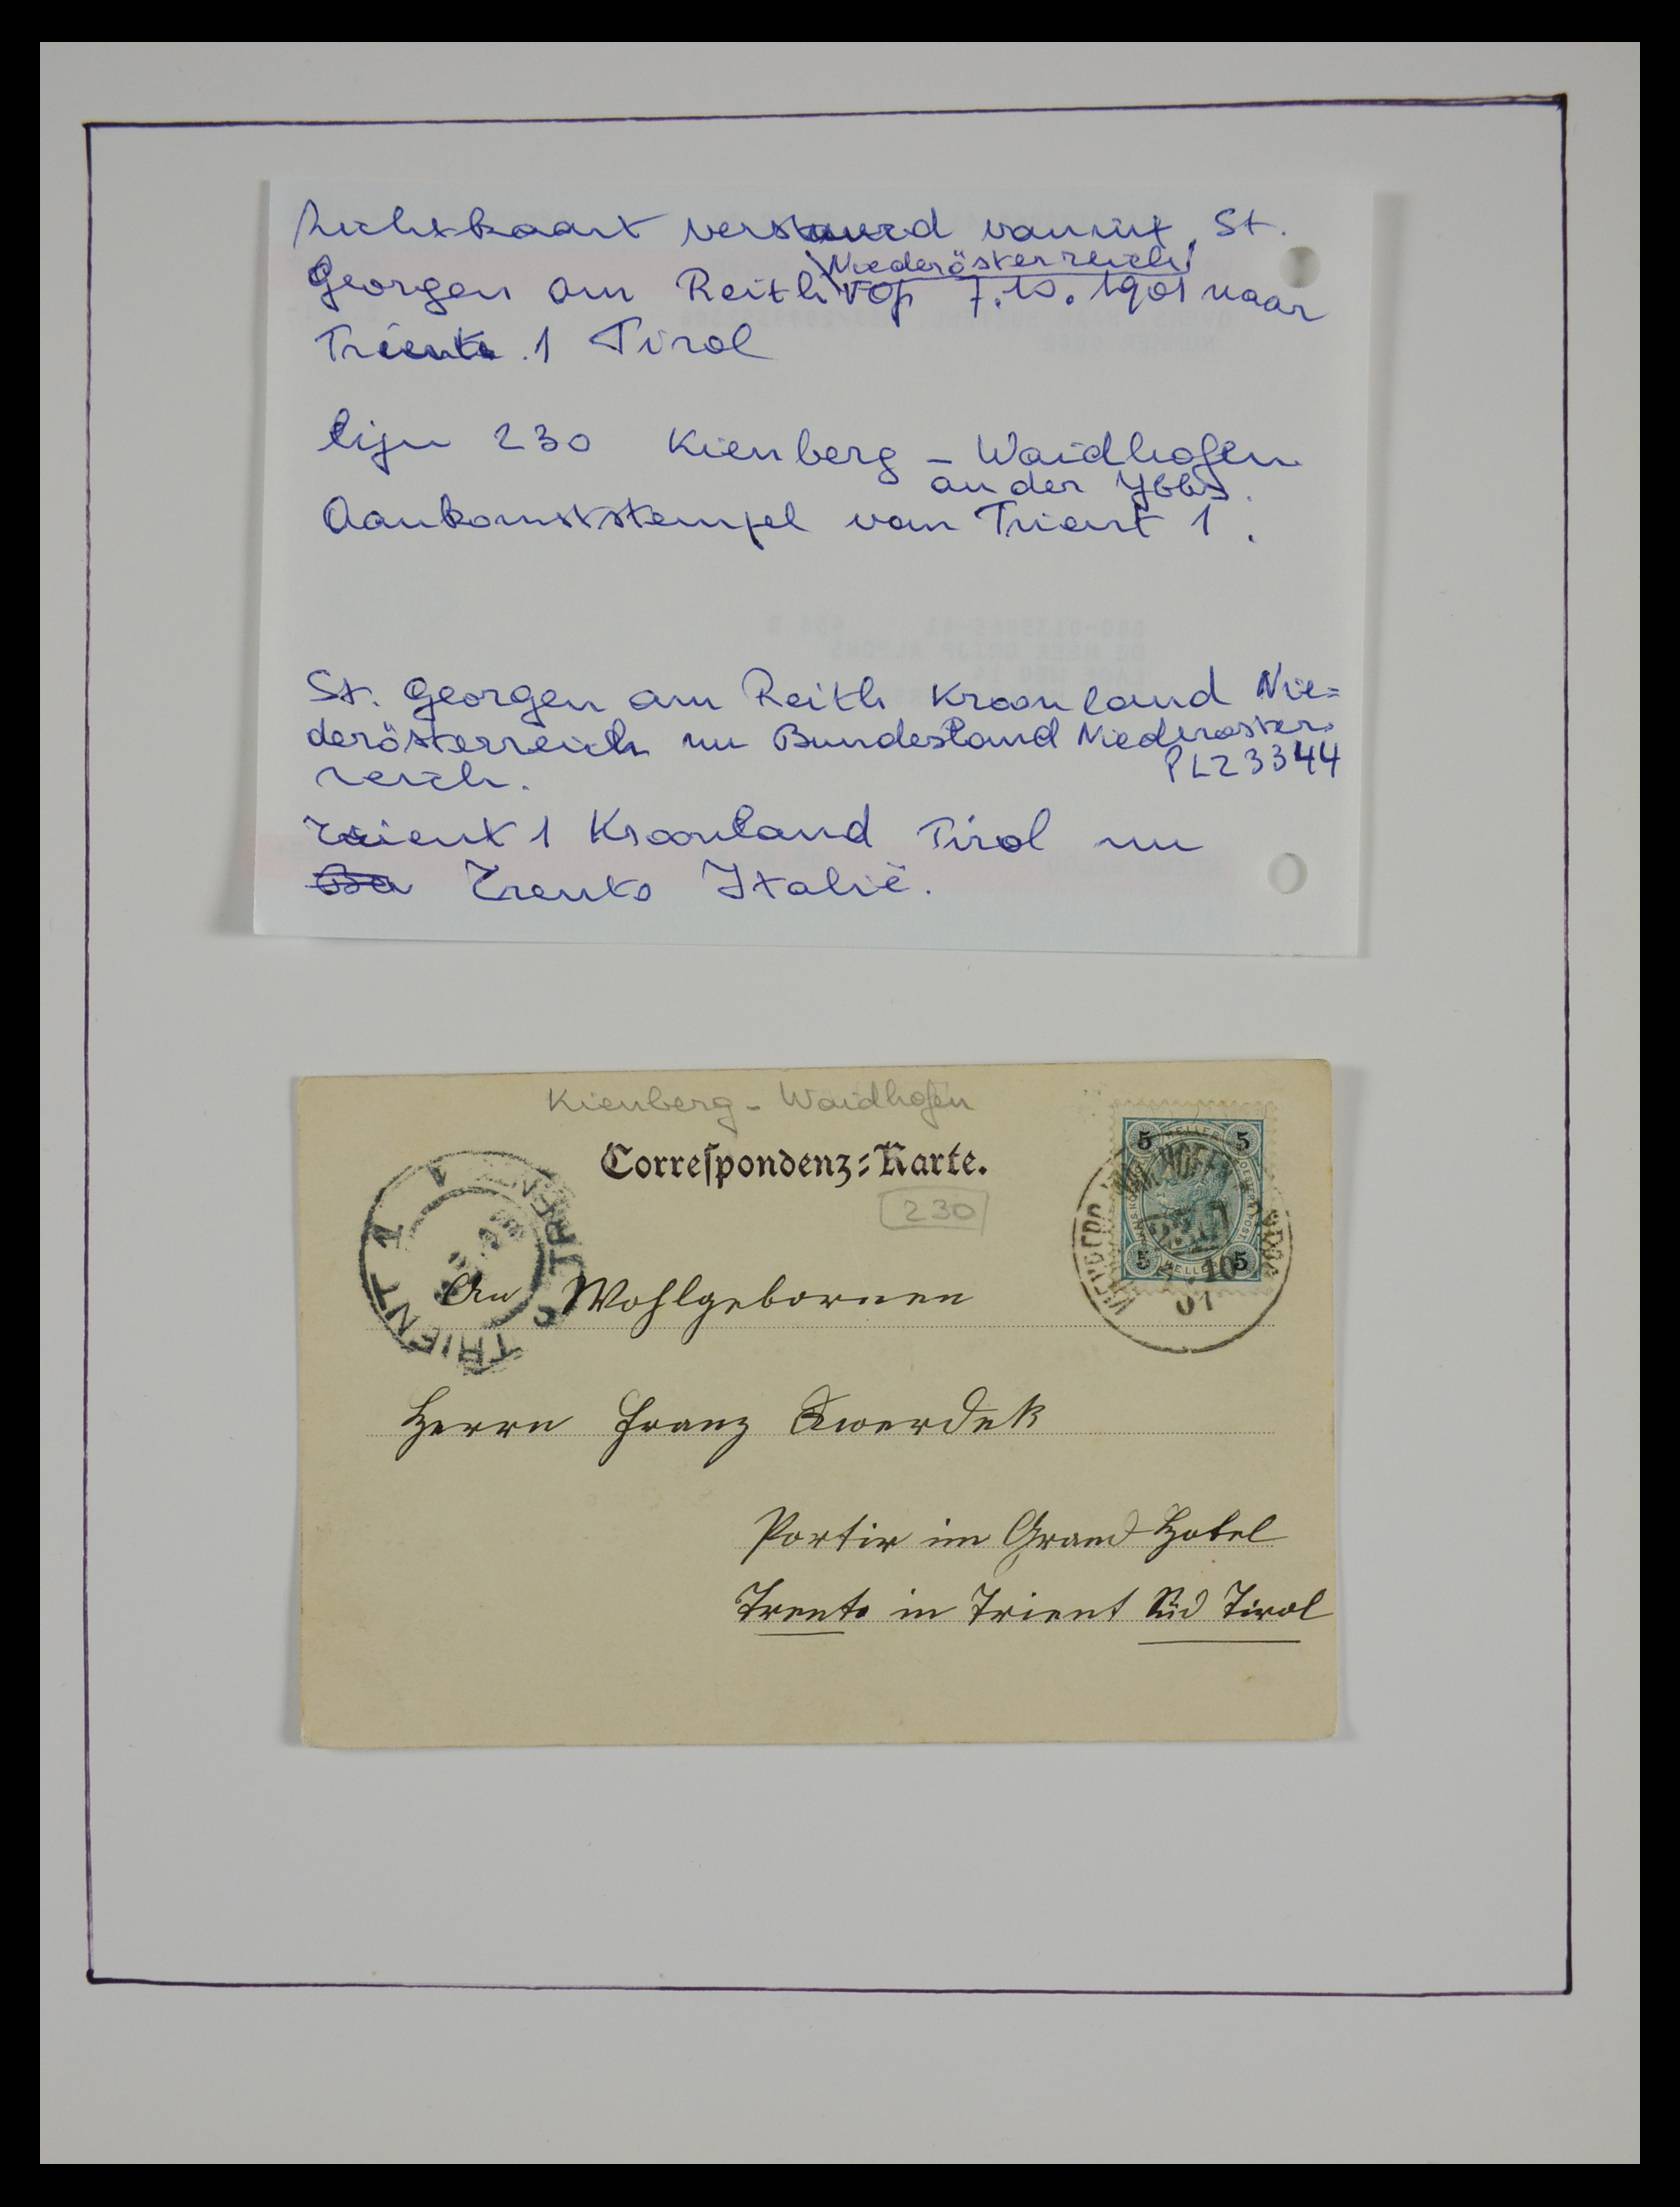 Zichtkaart verstuurd vanuit St.
Georgen am Reith (Niederösterreich) op 7.10.1901 naar
Trient 1 Tirol
lijn 230 Kienberg – Waidhofen
an der Ybbs.
Aankomststempel van Trient 1.
St. Georgen am Reith Kroonland Nie=
derösterreich nu Bundesland Niederöster=
reich. PLZ 3344
Trient 1 Kroonland Tirol nu
Trento Italië.
Kienberg - Waidhofen
Correspondenz-Karte.
230
5 HELLER 5
5 HELLER 5
10
01
TRIENT 1
An Wohlgebornen
Herrn Franz Swerdek
Portir im Grand Hotel
Trento in Trient Süd Tirol